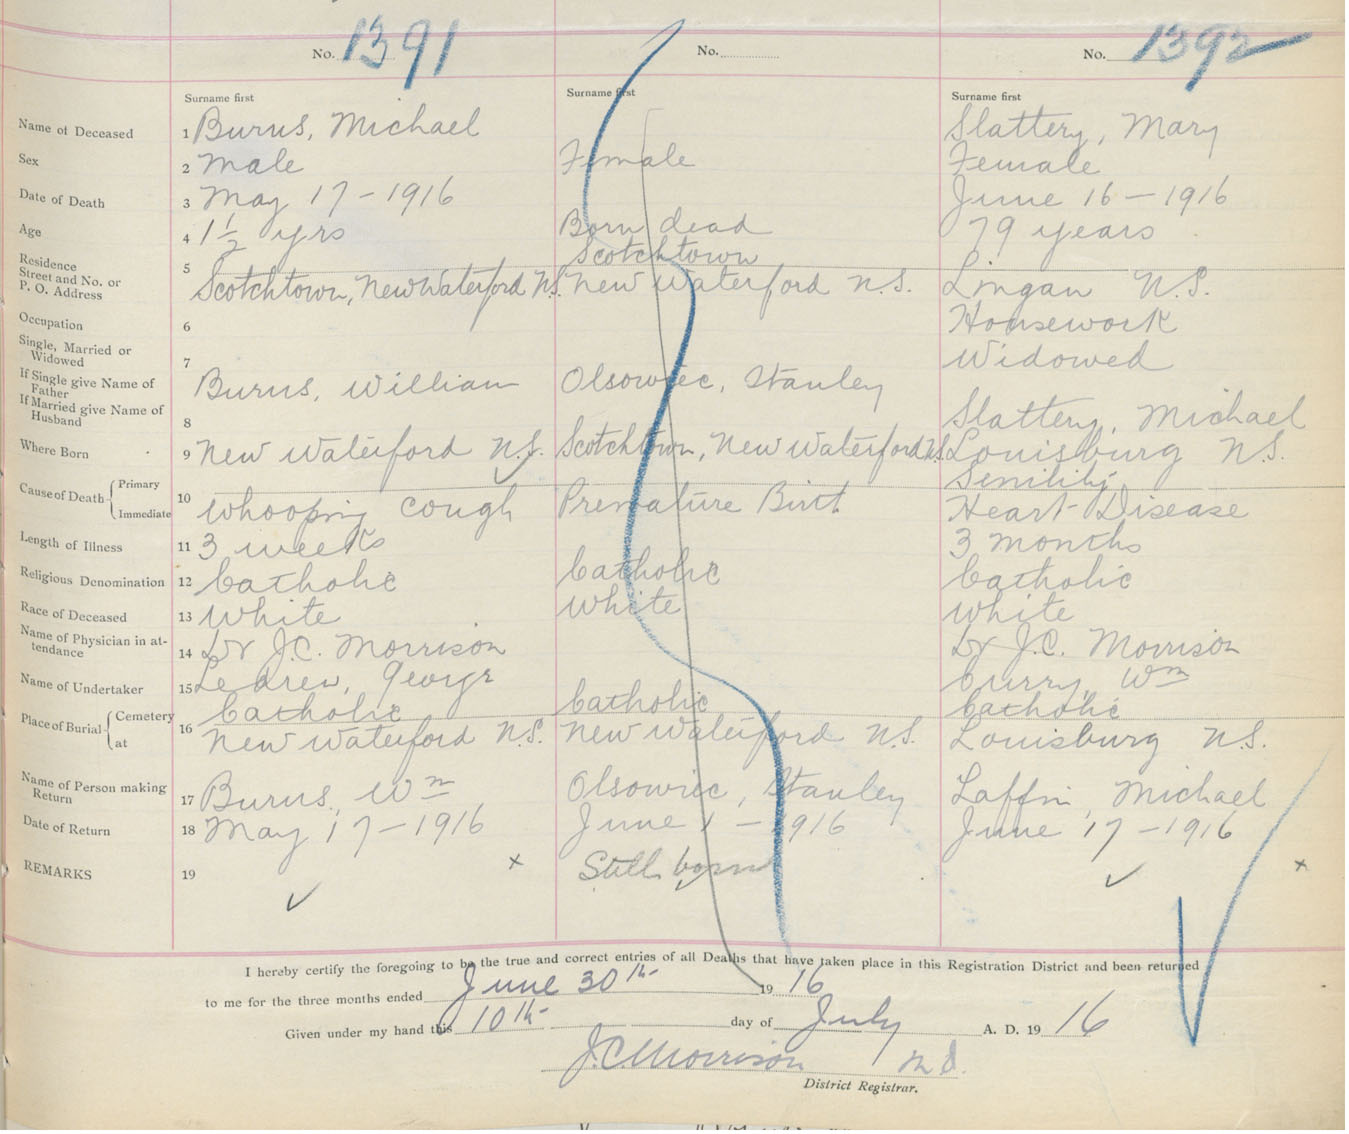 No. 1391 No. No. 1392
Surname first Surname first Surname first
Name of Deceased 1 Burns, Michael Slattery, Mary
Sex 2 Male Female Female
Date of Death 3 May 17-1916 June 16-1916
Age 4 1½ yrs Born dead 79 years
Scotchtown
Residence Street and No. or P. O. Address 5 Scotchtown, New Waterford N.S. New Waterford N.S. Lingan N.S.
Occupation 6 Housework
Single, Married or Widowed 7 Widowed
If Single give Name of Father Burns, William Olsowiec, Stanley
If Married give Name of Husband 8 Slattery, Michael
Where Born 9 New Waterford N.S. Scotchtown, New Waterford N.S. Louisburg N.S.
Cause of Death Primary Senility
Immediate 10 Whooping cough Premature Birth Heart Disease
Length of Illness 11 3 weeks 3 months
Religious Denomination 12 Catholic Catholic Catholic
Race of Deceased 13 White White White
Name of Physician in attendance 14 Dr J.C. Morrison Dr J.C. Morrison
Name of Undertaker 15 Ledrew, George Curry, Wm
Place of Burial Cemetery Catholic Catholic Catholic
at 16 New Waterford N.S. New Waterford N.S. Louisburg N.S.
Name of Person making Return 17 Burns, Wm Olsowiec, Stanley Laffin, Michael
Date of Return 18 May 17-1916 June 1-1916 June 17-1916
REMARKS 19 Still born
I hereby certify the foregoing to be the true and correct entries of all Deaths that have taken place in this Registration District and been returned
to me for the three months ended June 30th 1916
Given under my hand this 10th day of July A. D. 1916
J.C. Morrison M.D.
District Registrar.